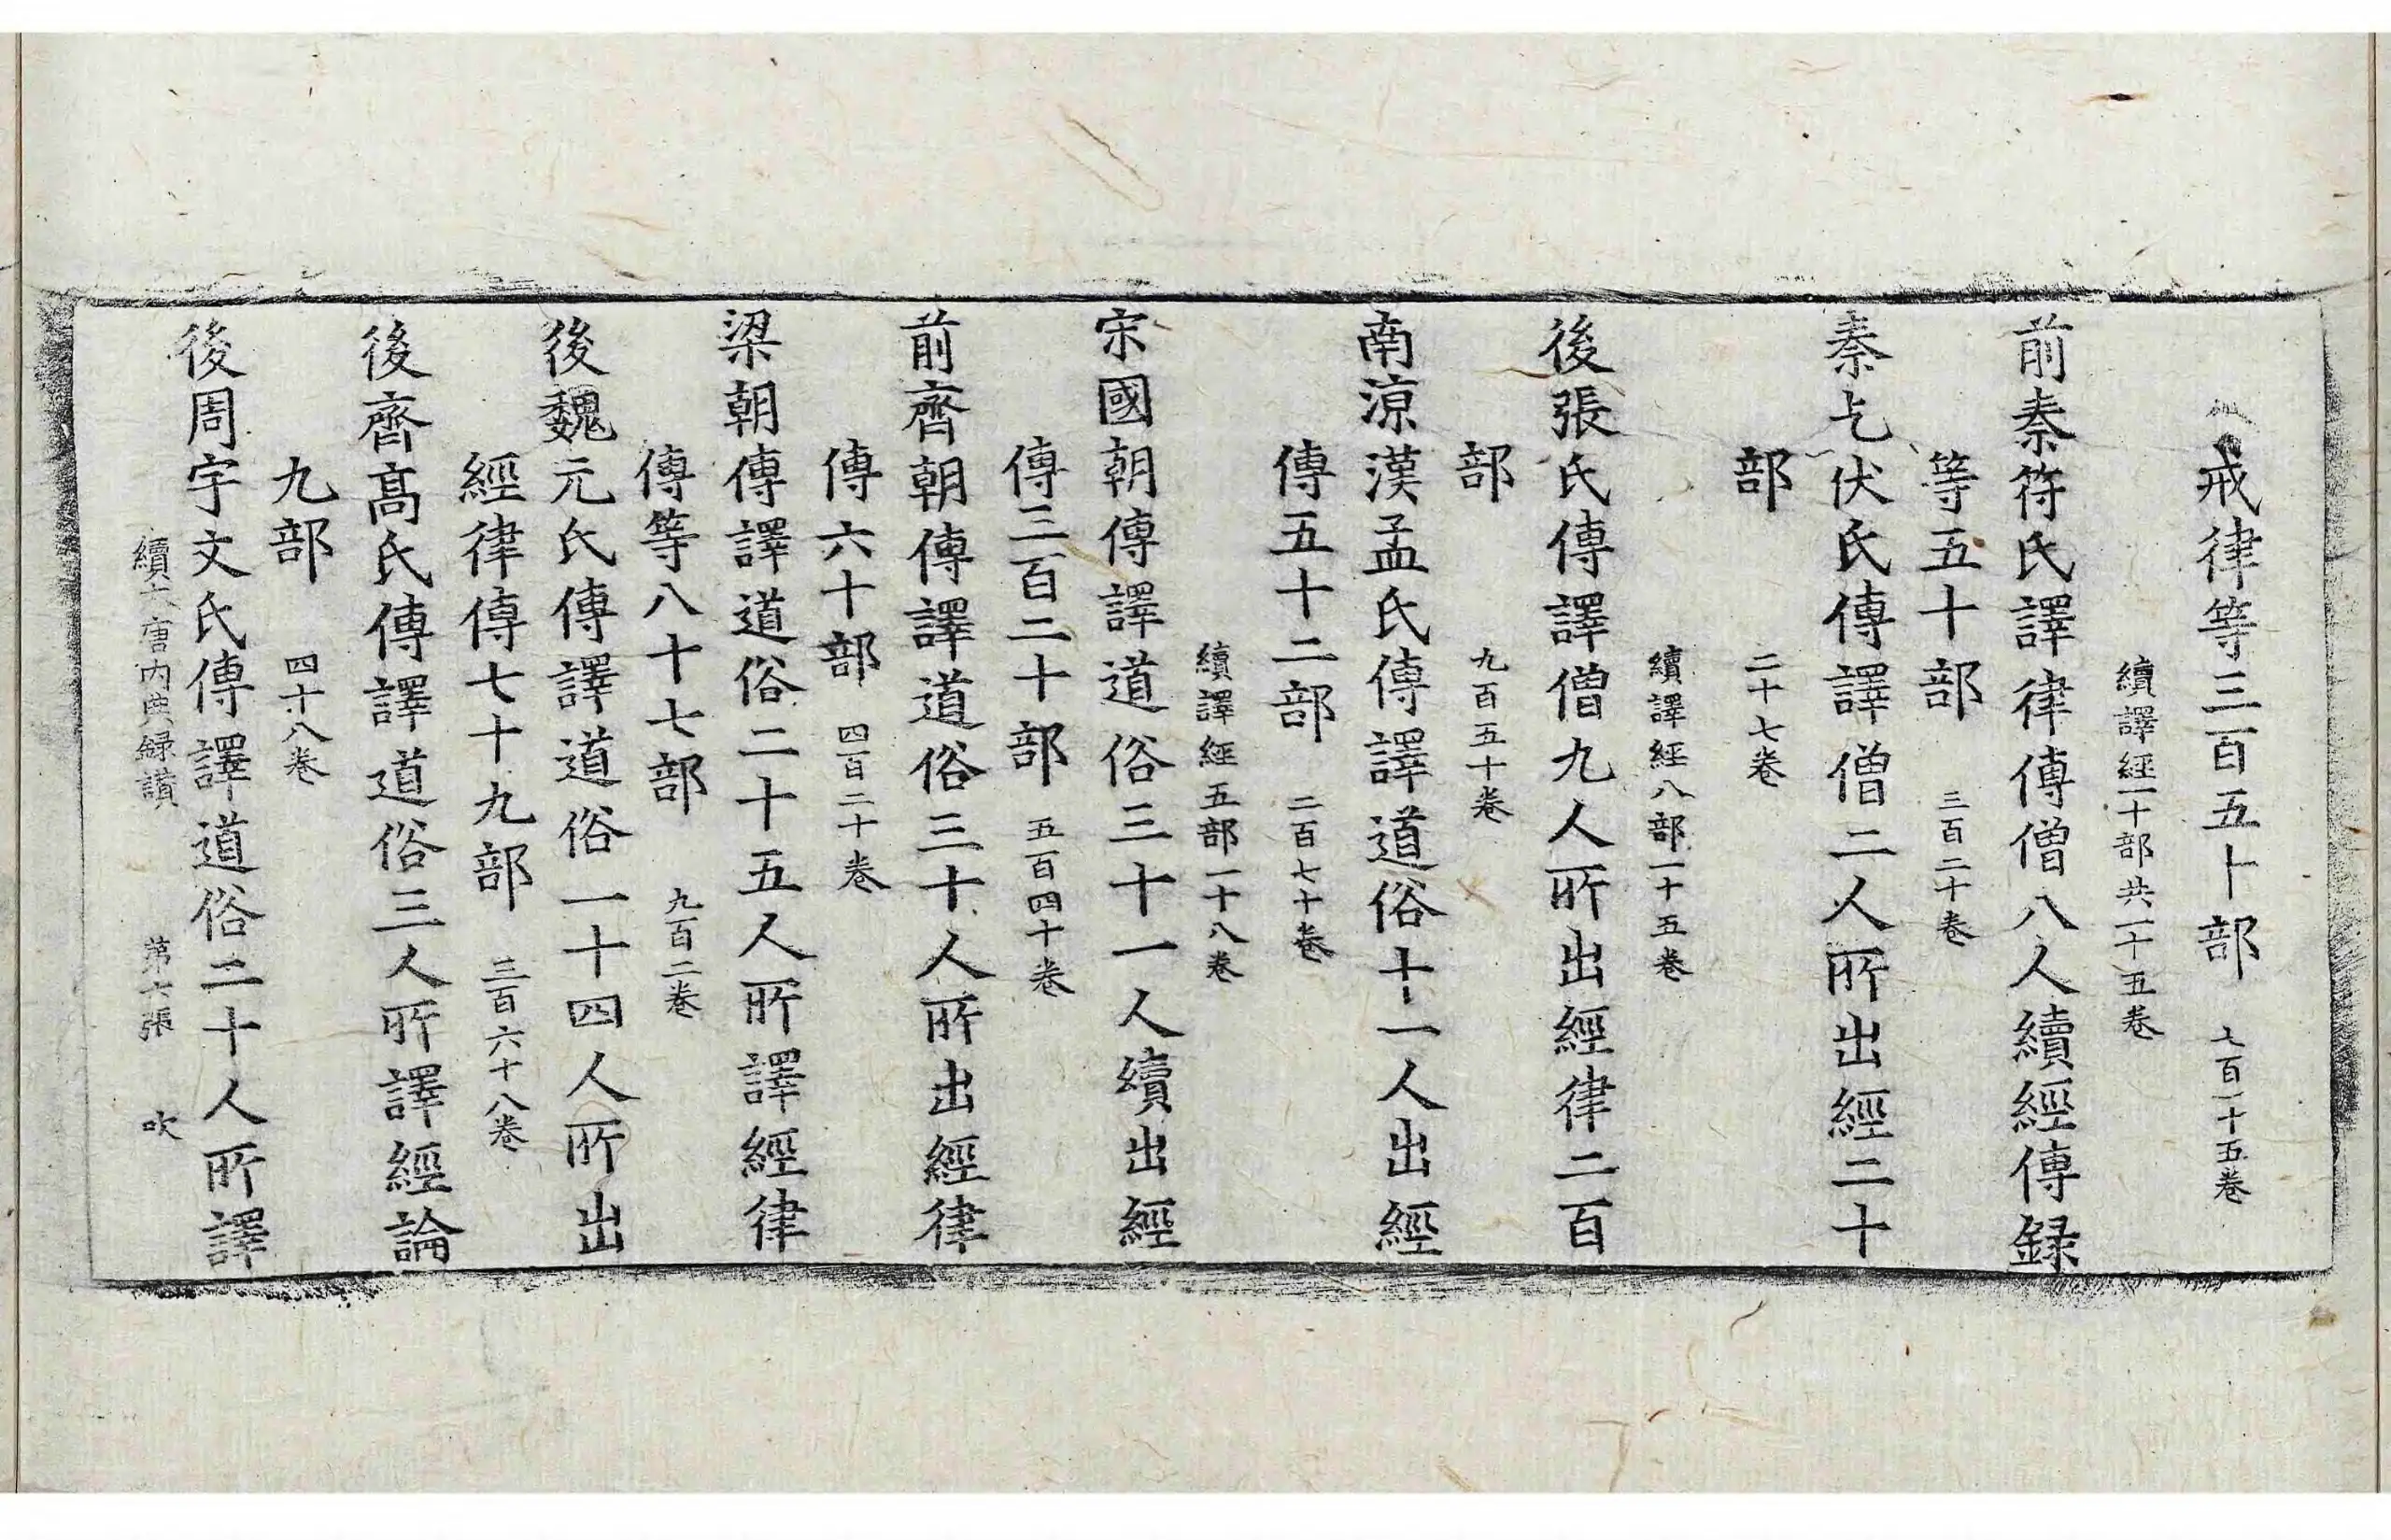 戒律等三百五十部 七百一十五卷
續譯經一十部共一十五卷
前秦符氏譯律傳僧八人續經傳録
等五十部 三百二十卷
秦乞伏氏傳譯僧二人所出經二十
部 二十七卷
續譯經八部一十五卷
後張氏傳譯僧九人所出經律二百
部 九百五十卷
南涼漢孟氏傳譯道俗十一人出經
傳五十二部 二百七十卷
續譯經五部一十八卷
宋國朝傳譯道俗三十一人續出經
傳三百二十部 五百四十卷
前齊朝傳譯道俗三十人所出經律
傳六十部 四百二十卷
梁朝傳譯道俗二十五人所譯經律
傳等八十七部 九百二卷
後魏元氏傳譯道俗一十四人所出
經律傳七十九部 三百六十八卷
後齊髙氏傳譯道俗三人所譯經論
九部 四十八卷
後周宇文氏傳譯道俗二十人所譯
續大唐内典録讃 苐六張 吹